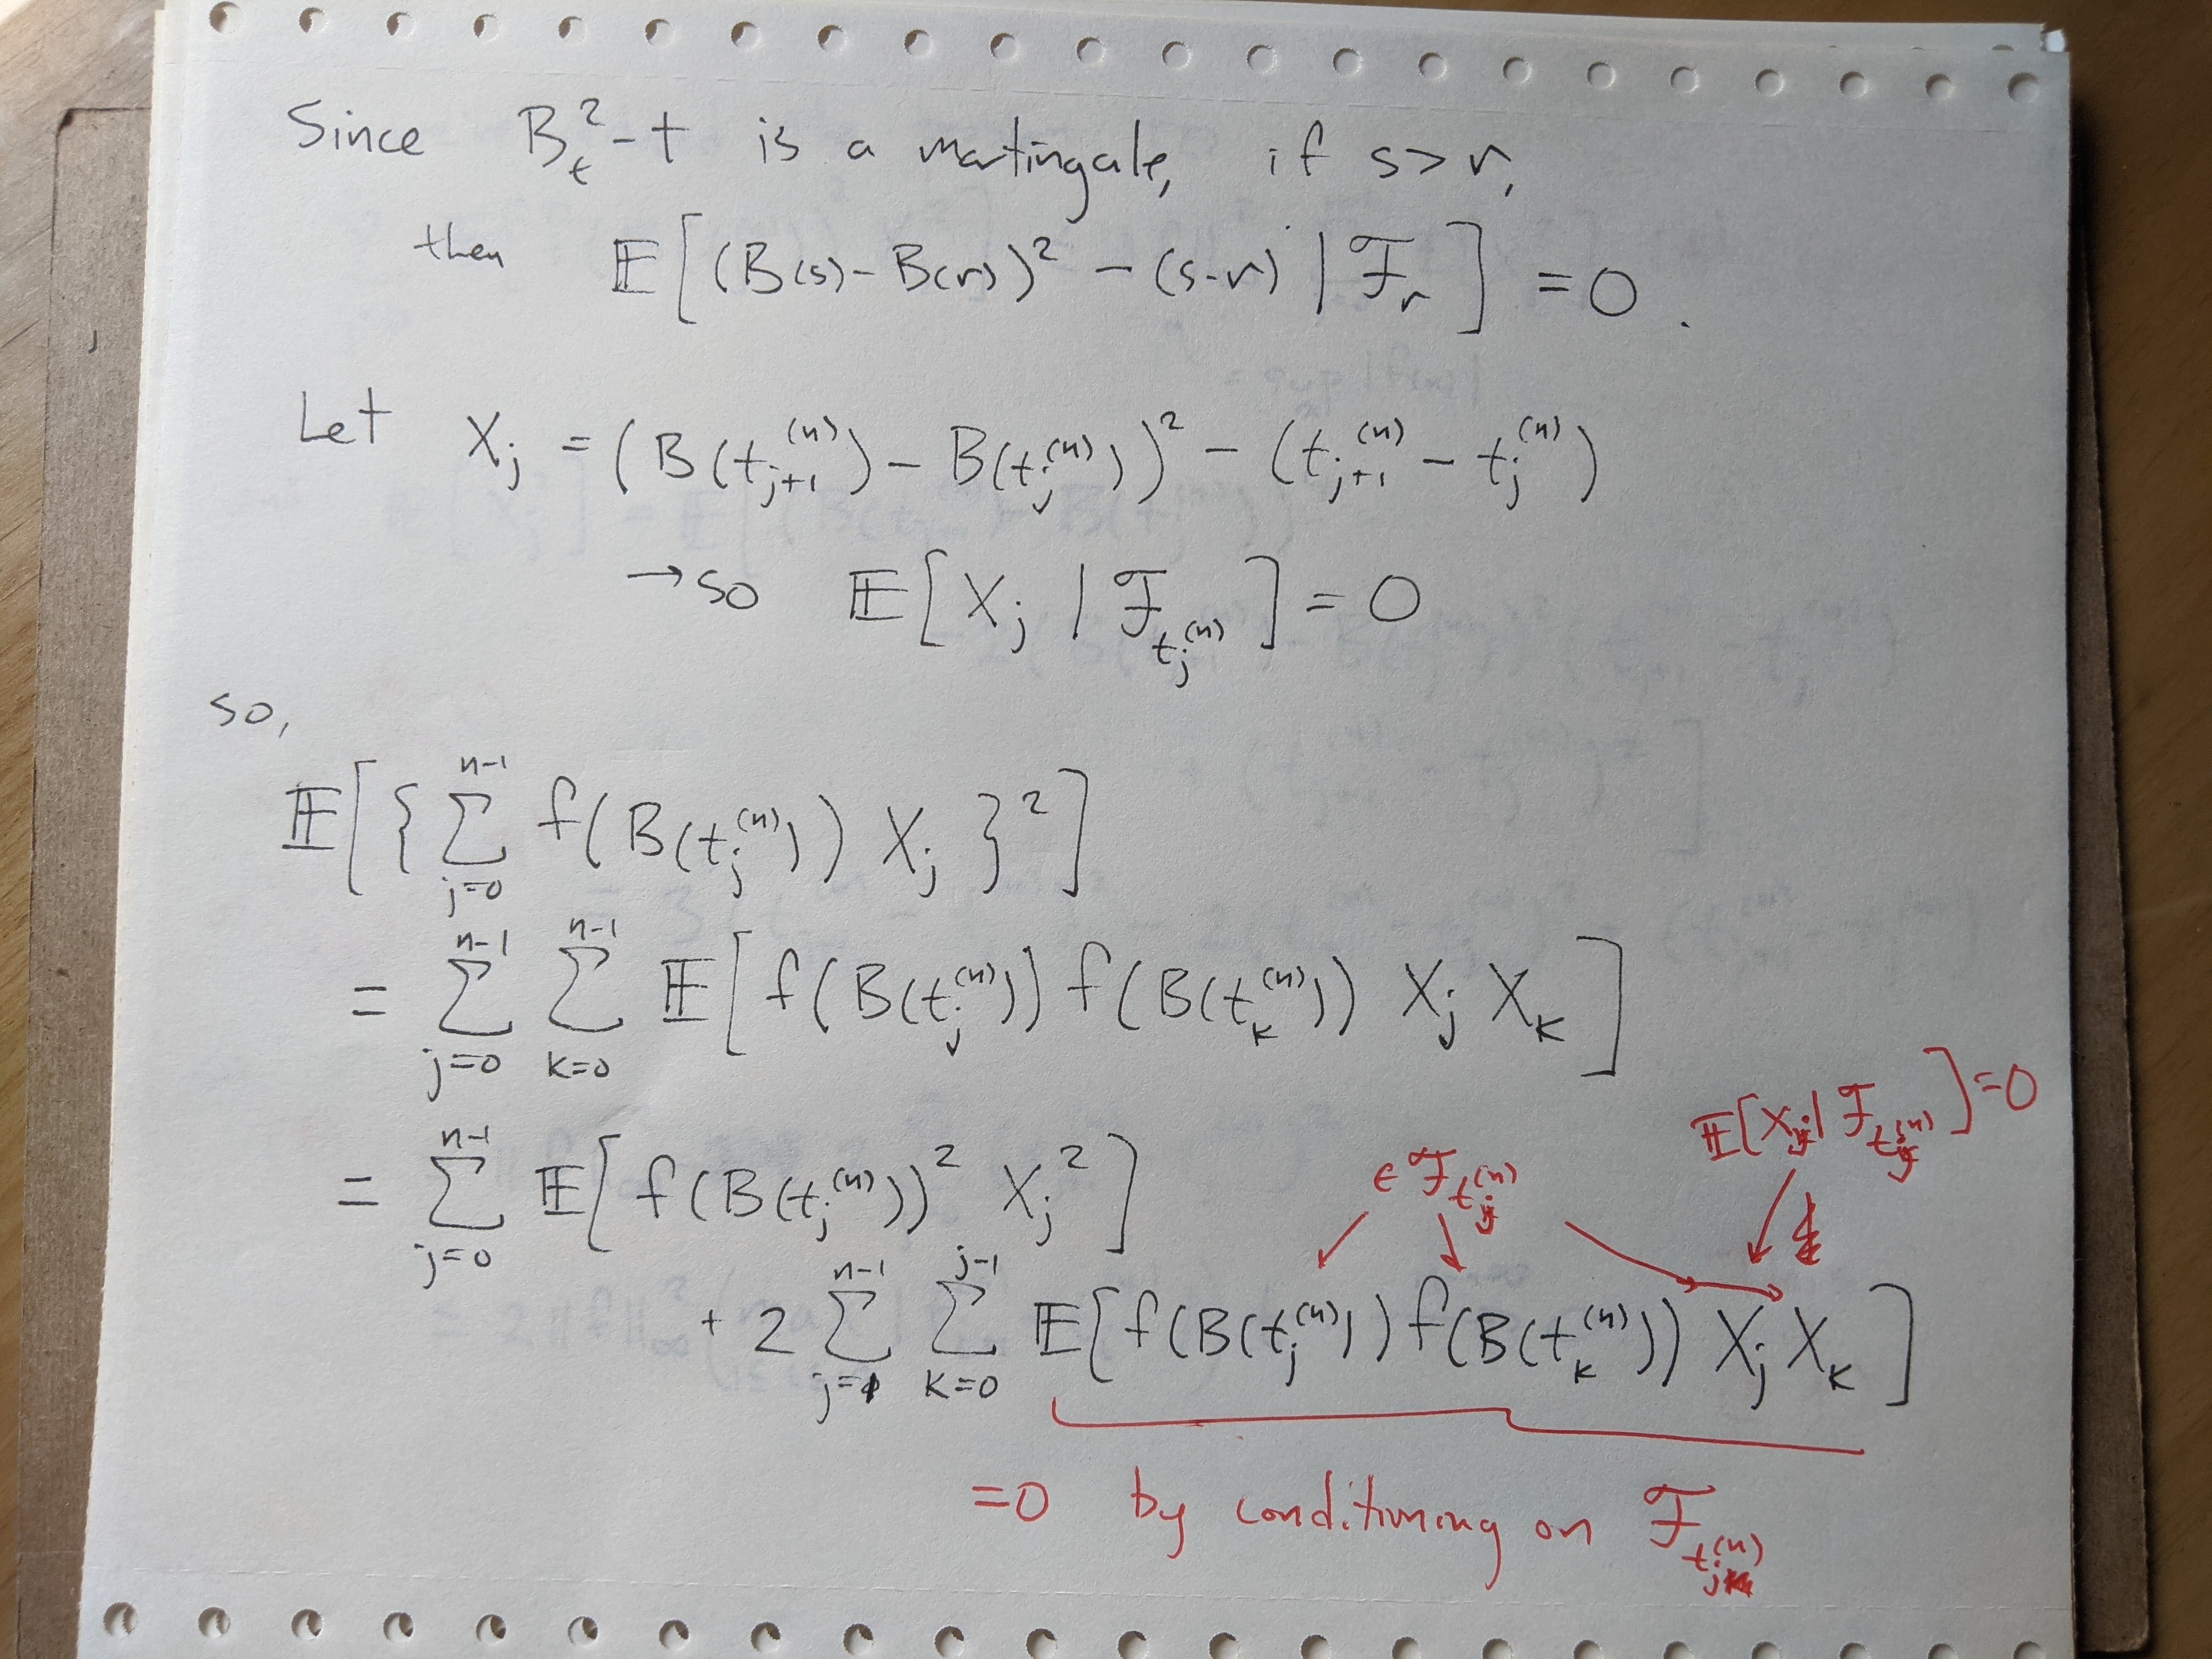 Since B_t^2 - t is a martingale, if s > r,
then 𝔼[(B(s) - B(r))^2 - (s-r) | ℱ_r] = 0.
Let X_j = (B(t_{j+1}^{(n)}) - B(t_j^{(n)}))^2 - (t_{j+1}^{(n)} - t_j^{(n)})
→ so 𝔼[X_j | ℱ_{t_j^{(n)}}] = 0
so,
𝔼[{∑_{j=0}^{n-1} f(B(t_j^{(n)})) X_j}^2]
= ∑_{j=0}^{n-1} ∑_{k=0}^{n-1} 𝔼[f(B(t_j^{(n)})) f(B(t_k^{(n)})) X_j X_k]
𝔼[X_j | ℱ_{t_j^{(n)}}] = 0
= ∑_{j=0}^{n-1} 𝔼[f(B(t_j^{(n)}))^2 X_j^2]
∈ ℱ_{t_j^{(n)}}
+ 2 ∑_{j=1}^{n-1} ∑_{k=0}^{j-1} 𝔼[f(B(t_j^{(n)})) f(B(t_k^{(n)})) X_j X_k]
=0 by conditioning on ℱ_{t_j^{(n)}}